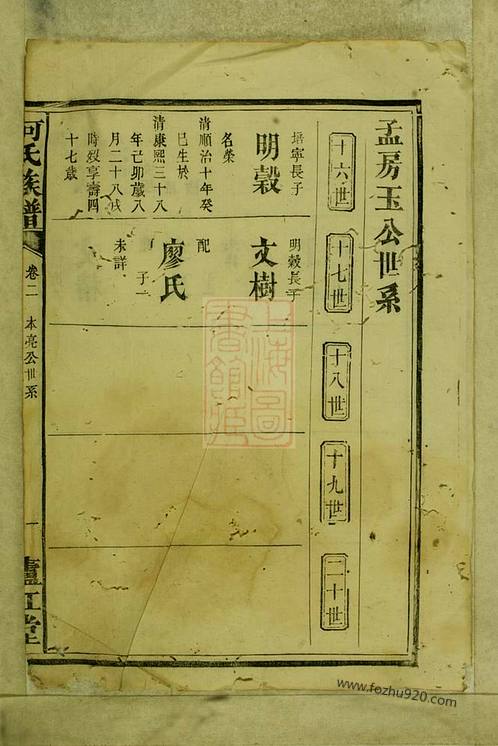 孟房玉公世系
十六世
十七世
十八世
十九世
二十世
培寧長子
明穀
名榮
清順治十年癸
巳生於
清康熙三十八
年己卯歲八
月二十八戌
時歿享壽四
十七歲
明穀長子
文樹
配
廖氏
子一
未詳
何氏族譜
卷二
本亮公世系
一
廬江堂
上海圖
書館藏
www.fozhu920.com